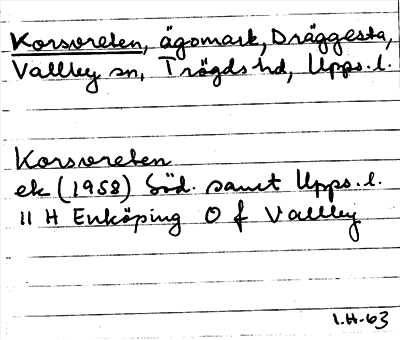 Korsvreten, ägomark, Dräggesta,
Vallby sn, Trögds hd, Upps. l.
Korsvreten
ek (1958) Söd. samt Upps. l.
11 H Enköping 0 f Vallby
I.H-63